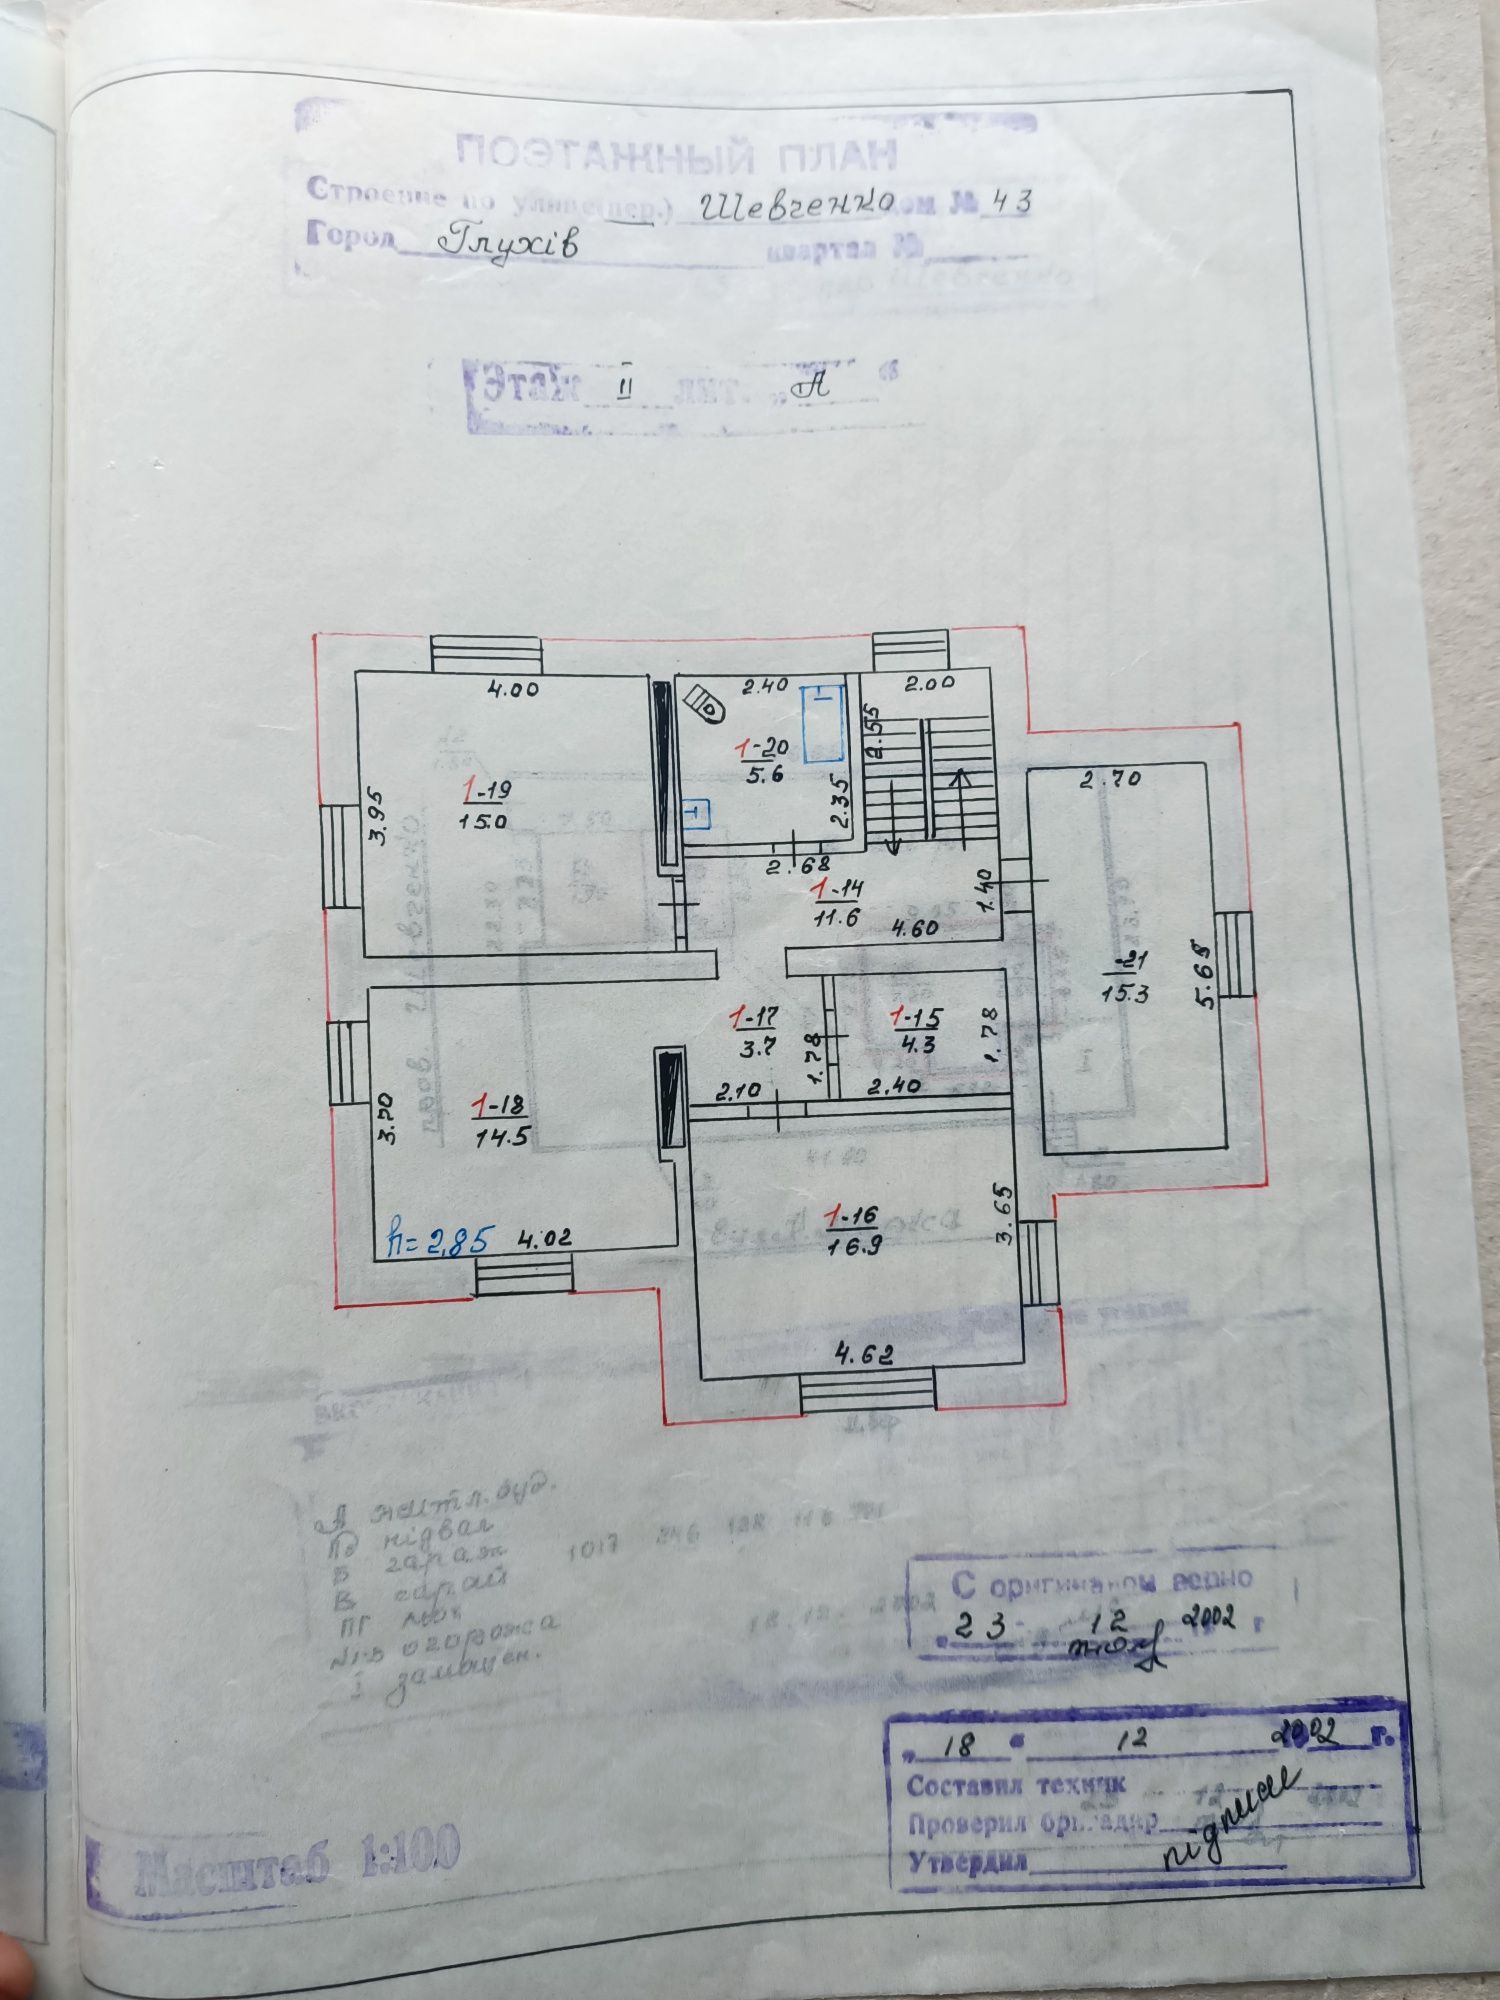 ПОЭТАЖНЫЙ ПЛАН
Строение по улице(пер.) Шевченко дом № 43
Город Глухів квартал №
Этаж II лит. „А“
4.00
2.40
2.00
3.95
1-19
15.0
1-20
5.6
2.55
2.35
2.70
2.68
1-14
11.6
1.40
4.60
-21
15.3
5.65
1-17
3.7
1.78
1-15
4.3
1.78
2.10
2.40
3.70
1-18
14.5
h=2,85
4.02
1-16
16.9
3.65
4.62
А житл. буд.
Пд підвал
Б гараж
В сарай
ПГ
N1-3 огорожа
I замощен.
1017 246 128 116
18.12. 2002
С оригиналом верно
„23 12 2002 г
„18“ 12 2002 г.
Составил техник
Проверил бригадир
Утвердил підписи
Масштаб 1:100